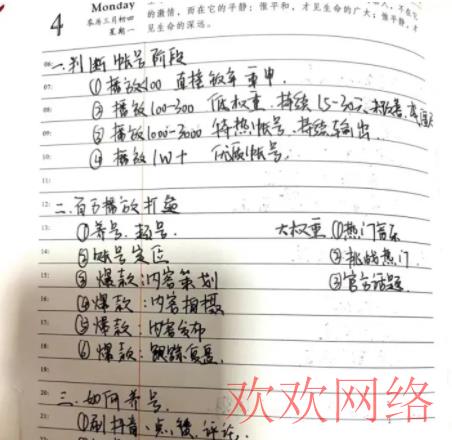 4
Monday
农历三月初四
星期一
的激情，而在它的平静；惟平和，才见生命的广大；惟平静，才
见生命的深远。
06:
07:
08:
09:
10:
11:
12:
13:
14:
15:
16:
17:
18:
19:
20:
21:
一、判断帐号阶段
① 播放100 直接放弃重申.
② 播放100-300 低权重.持续15-30天
③ 播放1000-3000 待热帐号.持续输出
④ 播放1W+ 优质帐号.
二、百万播放打造
① 养号.
② 账号定位
③ 爆款:内容策划
④ 爆款:内容拍摄
⑤ 爆款:内容发布
⑥ 爆款:跟踪复盘.
大权重 ①热门音乐
②挑战热门
③官方话题
三、如何养号.
①刷抖音、点赞、评论,
欢欢网络